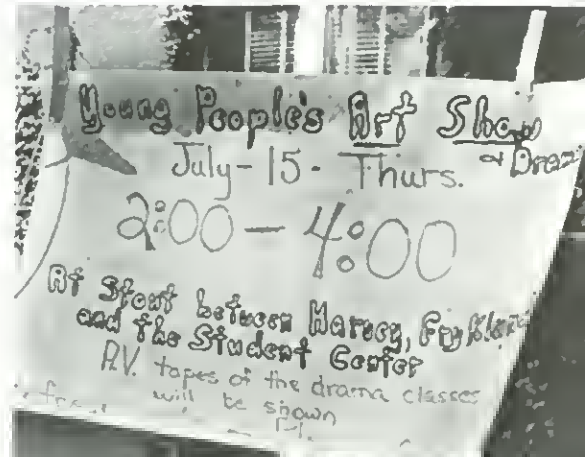 Young People's Art Show
& Drama
July - 15 - Thurs.
2:00 — 4:00
At Stout between Harvey, Fryklund
and the Student Center
A.V. tapes of the drama classes
will be shown